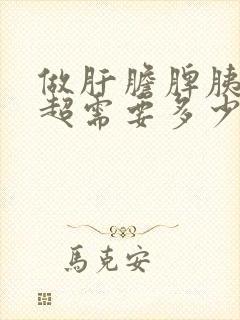 做肝膽脾胰
超需要多少
馬克安